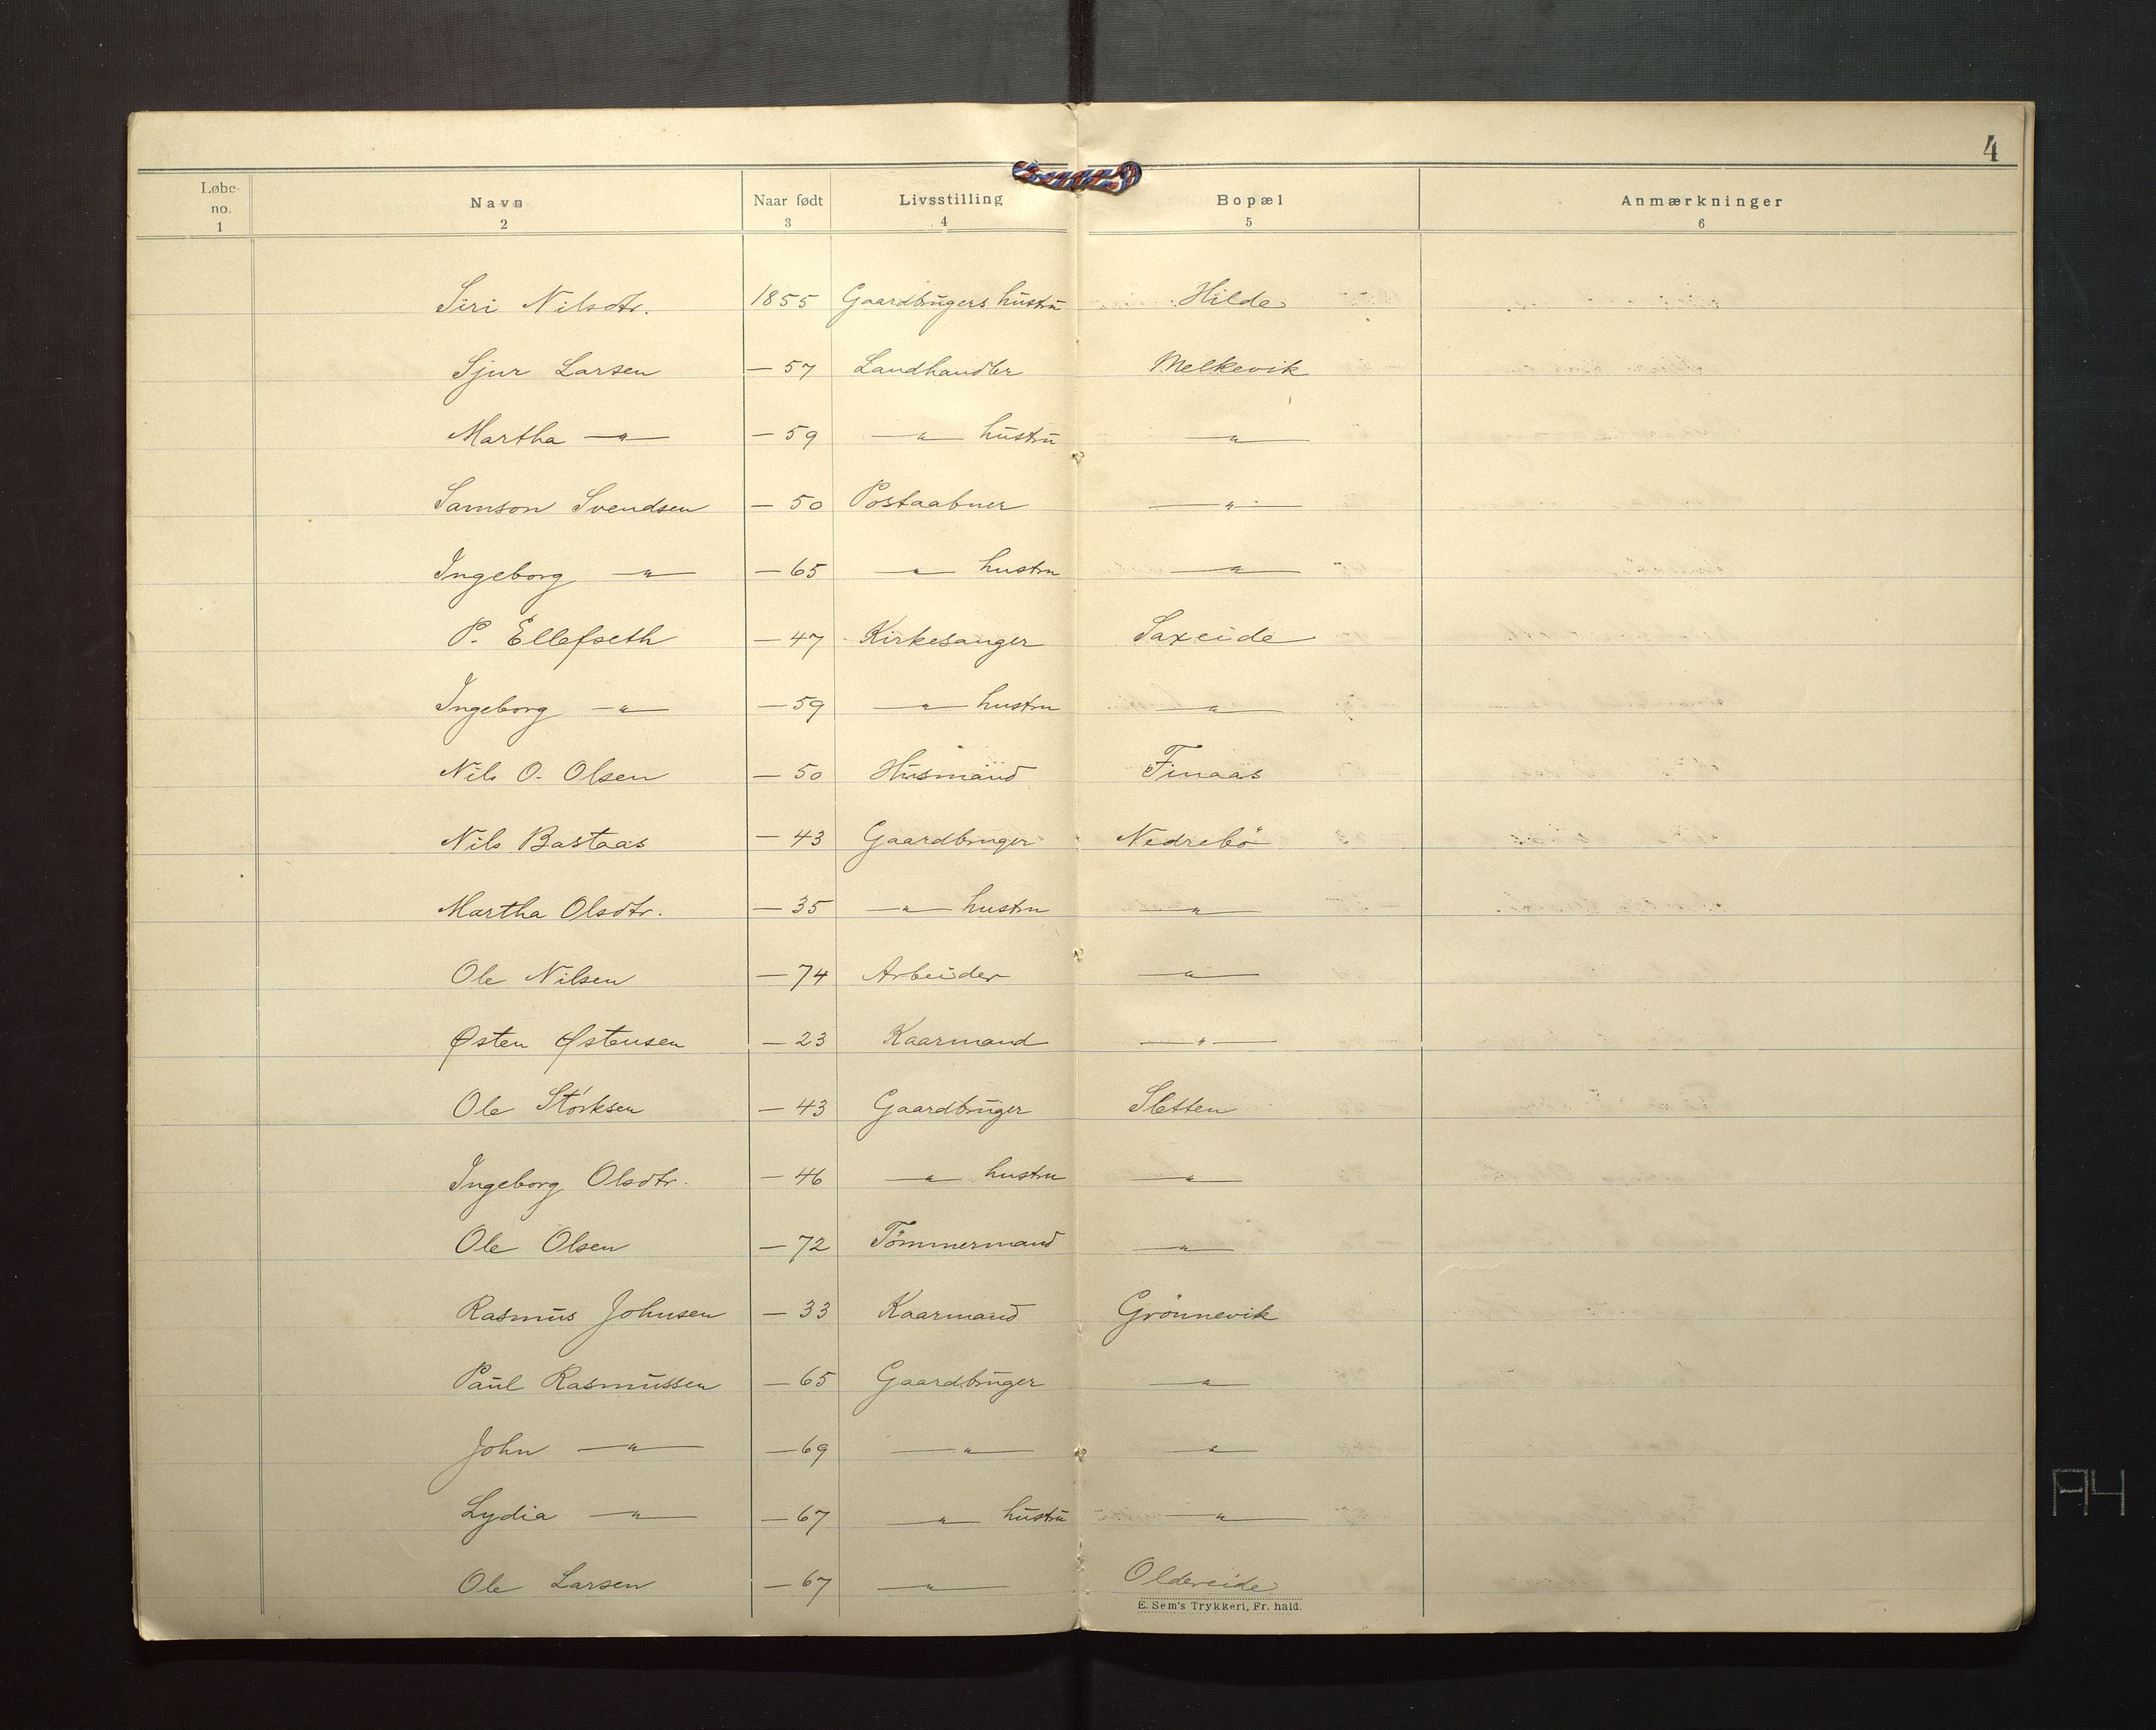 4
Løbe-no. Navn Naar født Livsstilling Bopæl Anmærkninger
1 2 3 4 5 6
Siri Nilsdtr. 1855 Gaardbrugers hustru Hilde
Sjur Larsen — 57 Landhandler Melkevik
Martha —"— — 59 —"— hustru —"—
Samson Svendsen — 50 Postaabner —"—
Ingeborg —"— — 65 —"— hustru —"—
P. Ellefseth — 47 Kirkesanger Saxeide
Ingeborg —"— — 59 —"— hustru —"—
Nils O. Olsen — 50 Husmand Finaas
Nils Bastaas — 43 Gaardbruger Nedrebö
Martha Olsdtr. — 35 —"— hustru —"—
Ole Nilsen — 74 Arbeider —"—
Østen Østensen — 23 Kaarmand —"—
Ole Störksen — 43 Gaardbruger Sletten
Ingeborg Olsdtr. — 46 —"— hustru —"—
Ole Olsen — 72 Tömmermand —"—
Rasmus Johnsen — 33 Kaarmand Grönnevik
Paul Rasmussen — 65 Gaardbruger —"—
John —"— — 69 —"— —"—
Lydia —"— — 67 —"— hustru —"—
Ole Larsen — 67 —"— Oldereide
E. Sem's Trykkeri, Fr. hald.
A4